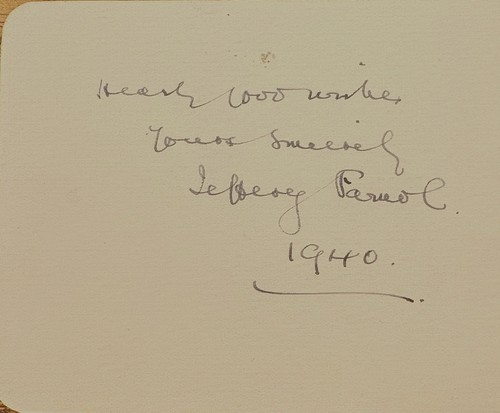 Hearty good wishes
Yours sincerely
Jeffery Farnol.
1940.